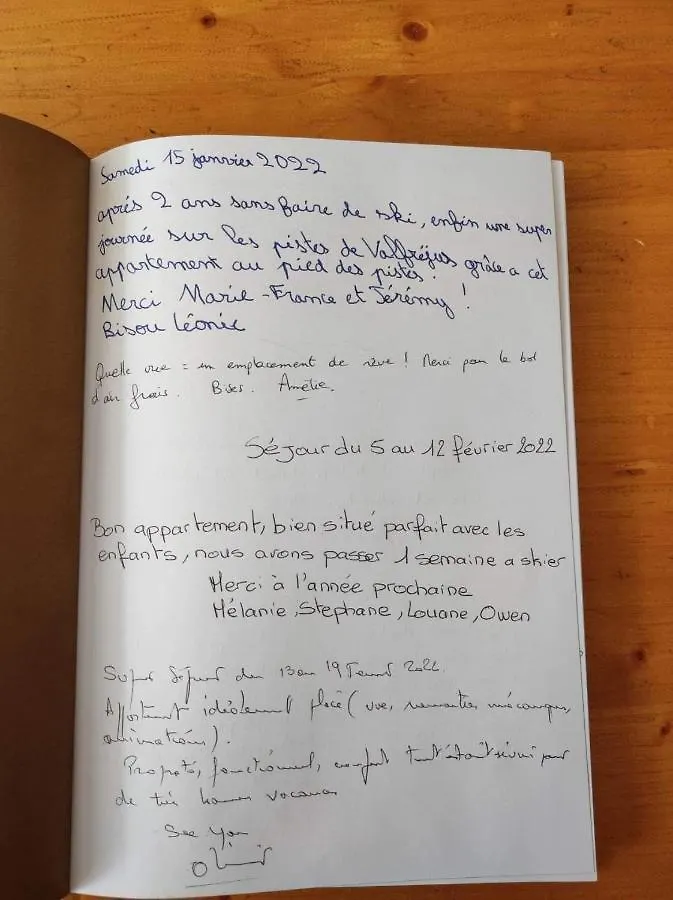 Samedi 15 janvier 2022
après 2 ans sans faire de ski, enfin une super
journée sur les pistes de Valfréjus grâce a cet
appartement au pied des pistes.
Merci Marie-France et Jérémy !
Bisou Léonie
Quelle vue = un emplacement de rêve ! Merci pour le bol
d'air frais. Bises. Amélie.
Séjour du 5 au 12 février 2022
Bon appartement, bien situé parfait avec les
enfants, nous avons passer 1 semaine a skier
Merci à l'année prochaine
Mélanie, Stephane, Louane, Owen
Super Séjour du 13 au 19 2022.
Appartement idéalement placé (vue, remontées mécaniques,
animations).
Propreté, fonctionnel, confort tout était réuni pour
de très bonnes vacances
See You